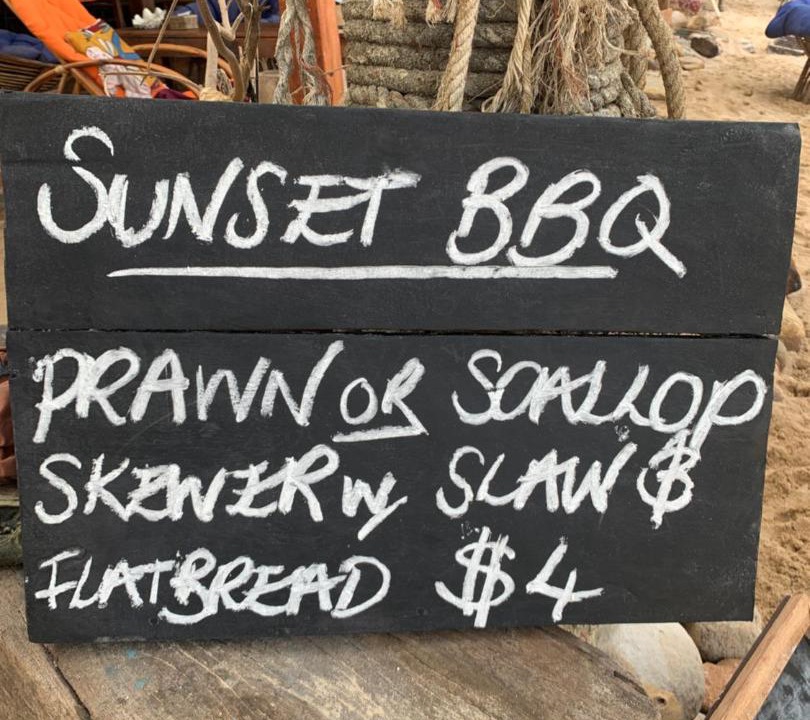 SUNSET BBQ
PRAWN OR SCALLOP
SKEWER W/ SLAW $
FLATBREAD $4